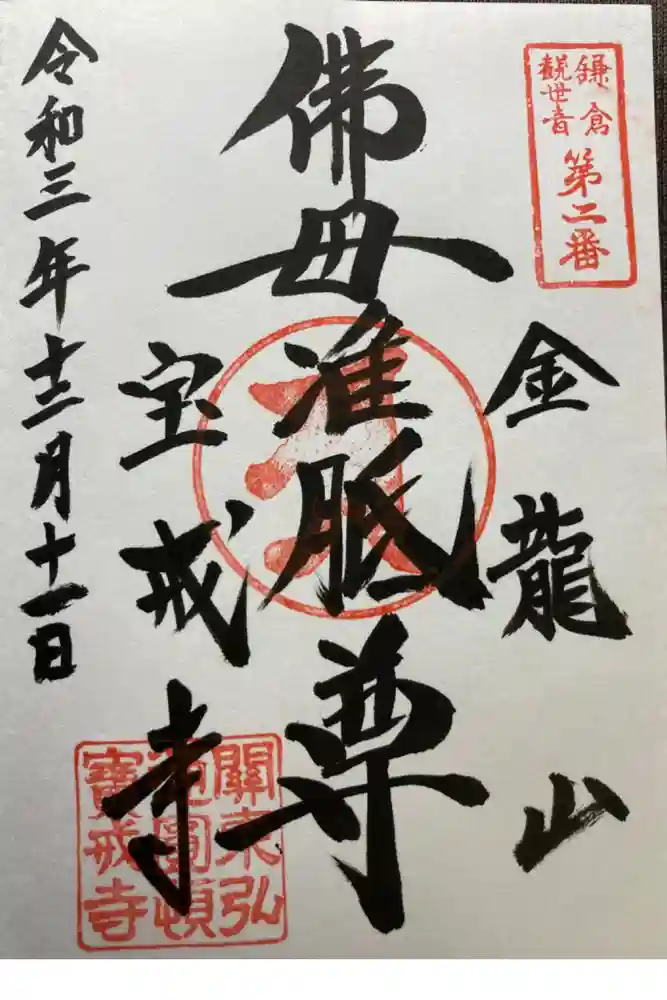 鎌倉
観世音
第二番
金龍山
佛母准胝尊
宝戒寺
令和三年十二月十一日
關東弘
通圓頓
寳戒寺